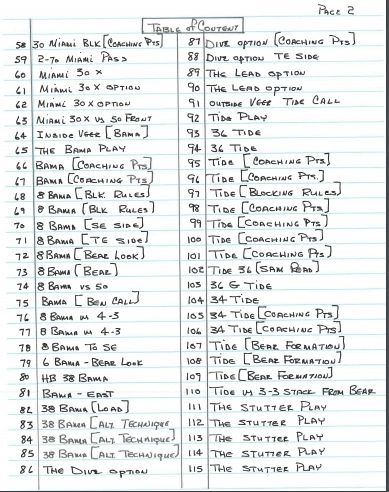 Page 2
Table of Content
58 30 Miami Blk [Coaching Pts]
59 2-70 Miami Pass
60 Miami 30 x
61 Miami 30x option
62 Miami 30x option
63 Miami 30x vs 50 Front
64 Inside Veer [Bama]
65 The Bama Play
66 Bama [Coaching Pts]
67 Bama [Coaching Pts]
68 8 Bama [Blk. Rules]
69 8 Bama [Blk Rules]
70 8 Bama [SE side]
71 8 Bama [TE side]
72 8 Bama [Bear Look]
73 8 Bama [Bear]
74 8 Bama vs 50
75 Bama [Ben Call]
76 8 Bama vs 4-3
77 8 Bama vs 4-3
78 8 Bama To SE
79 6 Bama - Bear Look
80 HB 38 Bama
81 Bama - East
82 38 Bama [Load]
83 38 Bama [Alt Technique]
84 38 Bama [Alt Technique]
85 38 Bama [Alt Technique]
86 The Dive option
87 Dive option [Coaching Pts]
88 Dive option TE side
89 The Lead option
90 The Lead option
91 outside Veer Tide Call
92 Tide Play
93 36 Tide
94 36 Tide
95 Tide [Coaching Pts]
96 Tide [Coaching Pts.]
97 Tide [Blocking Rules]
98 Tide [Coaching Pts]
99 Tide [Coaching Pts]
100 Tide [Coaching Pts]
101 Tide [Coaching Pts]
102 Tide 36 [Sam Road]
103 36 G Tide
104 34 Tide
105 34 Tide [Coaching Pts]
106 34 Tide [Coaching Pts]
107 Tide [Bear Formation]
108 Tide [Bear Formation]
109 Tide [Bear Formation]
110 Tide vs 3-3 Stack From Bear
111 The Stutter Play
112 The Stutter Play
113 The Stutter Play
114 The Stutter Play
115 The Stutter Play